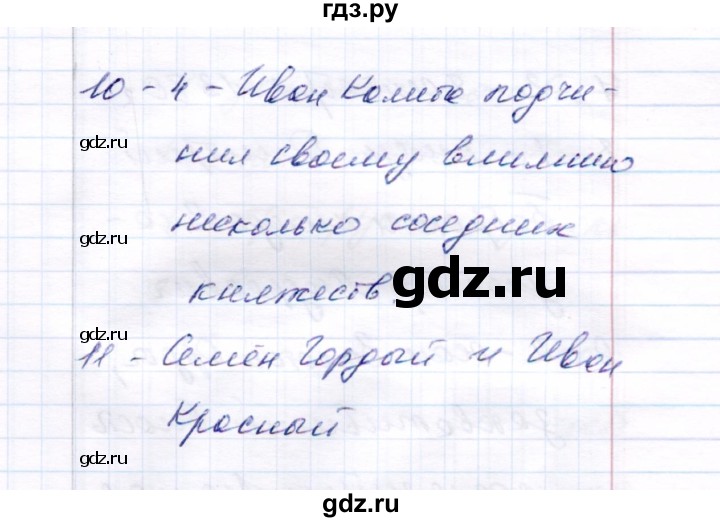 гдз.ру
10 - 4 - Иван Калита подчи-
gdz.ru
нил своему влиянию
несколько соседних
gdz.ru
княжеств.
gdz.ru
11 - Семён Гордый и Иван
Красный
gdz.ru
gdz.ru